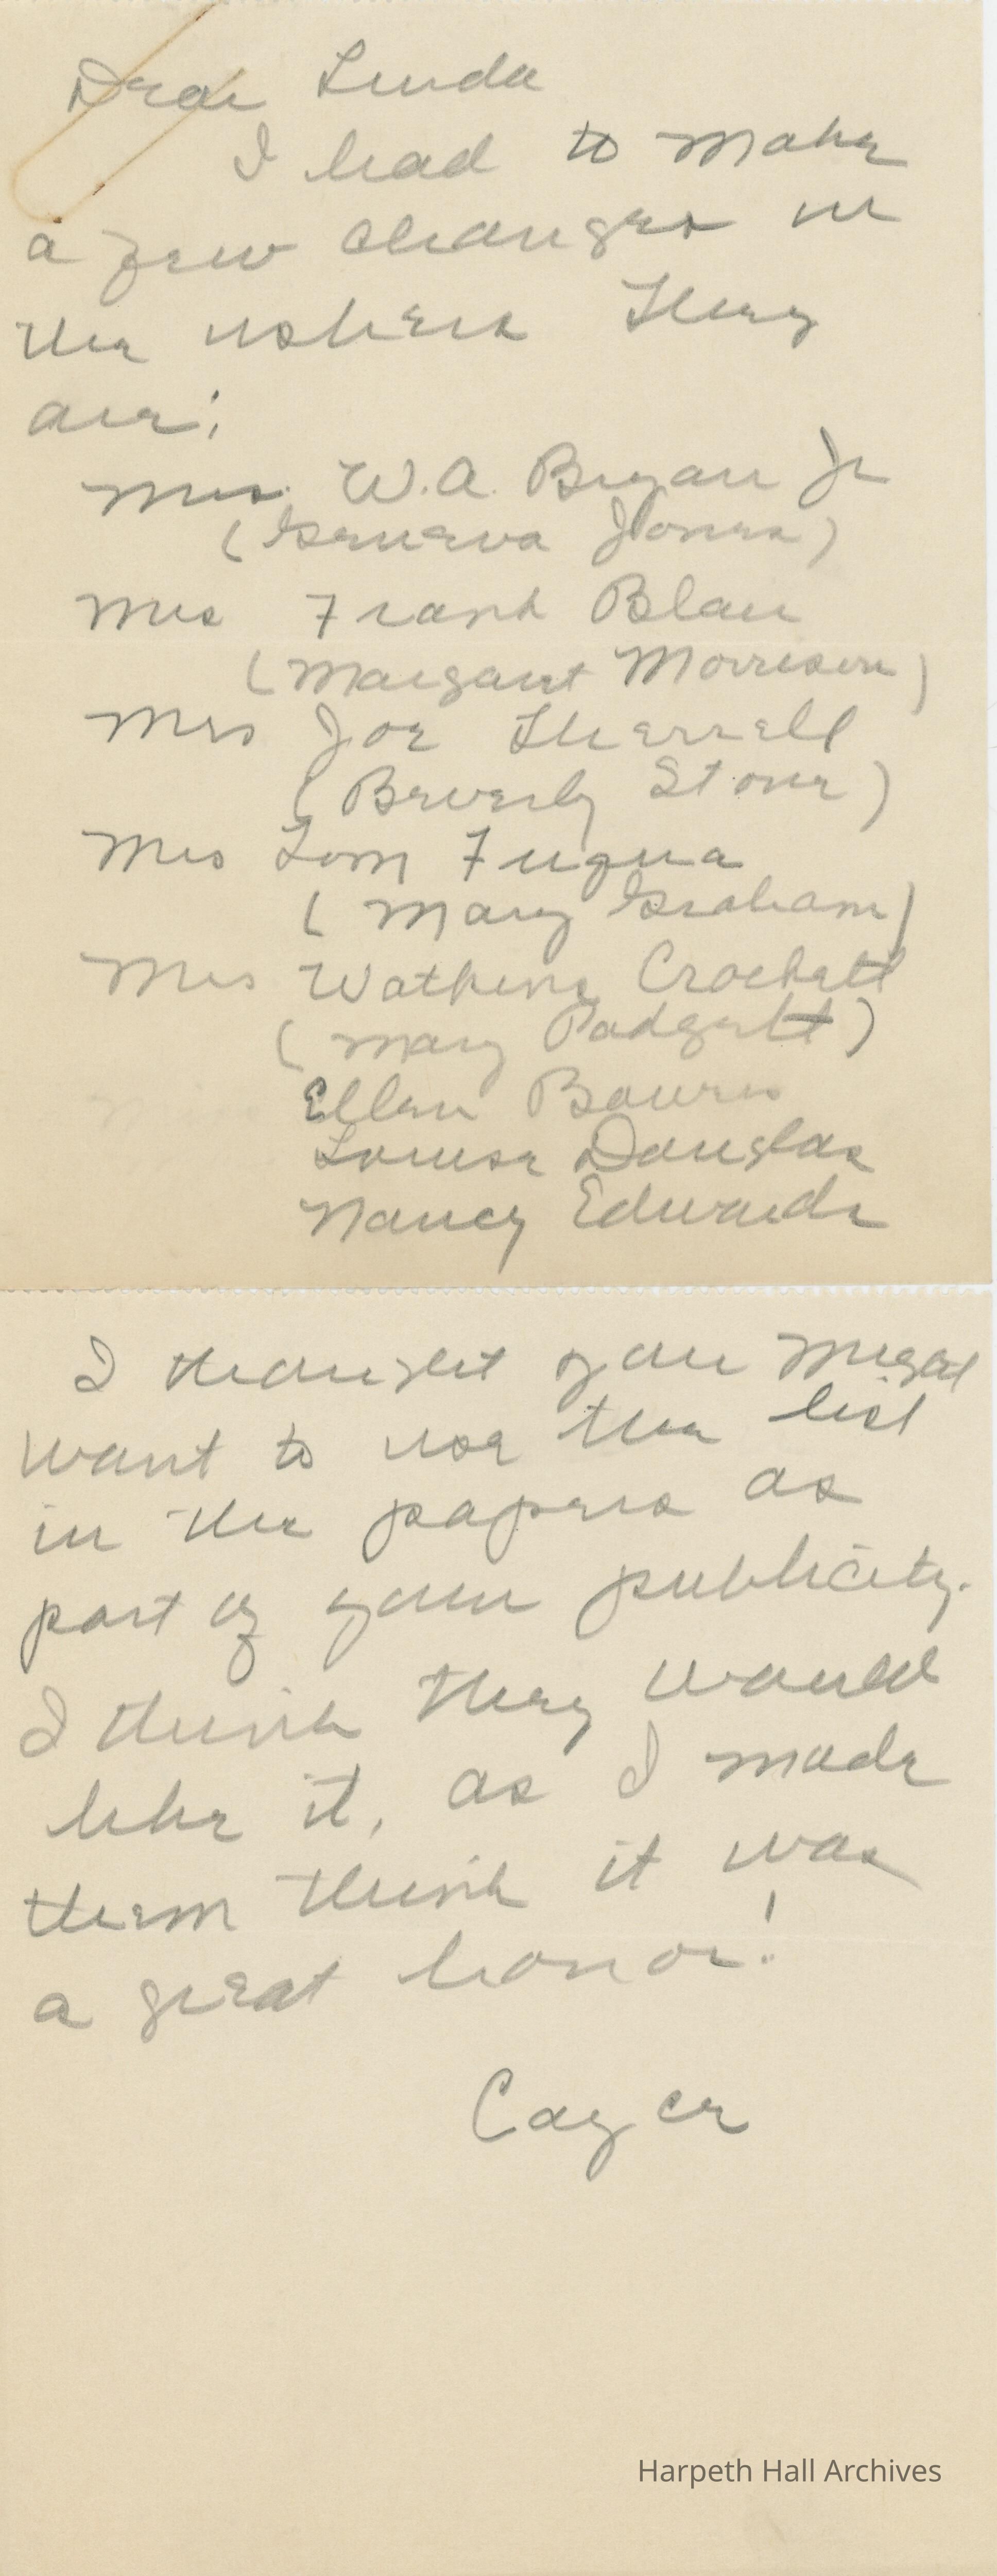 Dear Linda
I had to make
a few changes in
the ushers They
are:
Mrs. W.A. Bryan Jr
(Geneva Jones)
Mrs Frank Blair
(Margaret Morrison)
Mrs Joe Therrell
(Beverly Stone)
Mrs Tom Fuqua
(Mary Graham)
Mrs Watkins Crockett
(Mary Padgett)
Ellen Bowers
Louise Douglas
Nancy Edwards
I thought you might
want to use the list
in the papers as
part of your publicity.
I think they would
like it, as I made
them think it was
a great honor!
Cayce
Harpeth Hall Archives